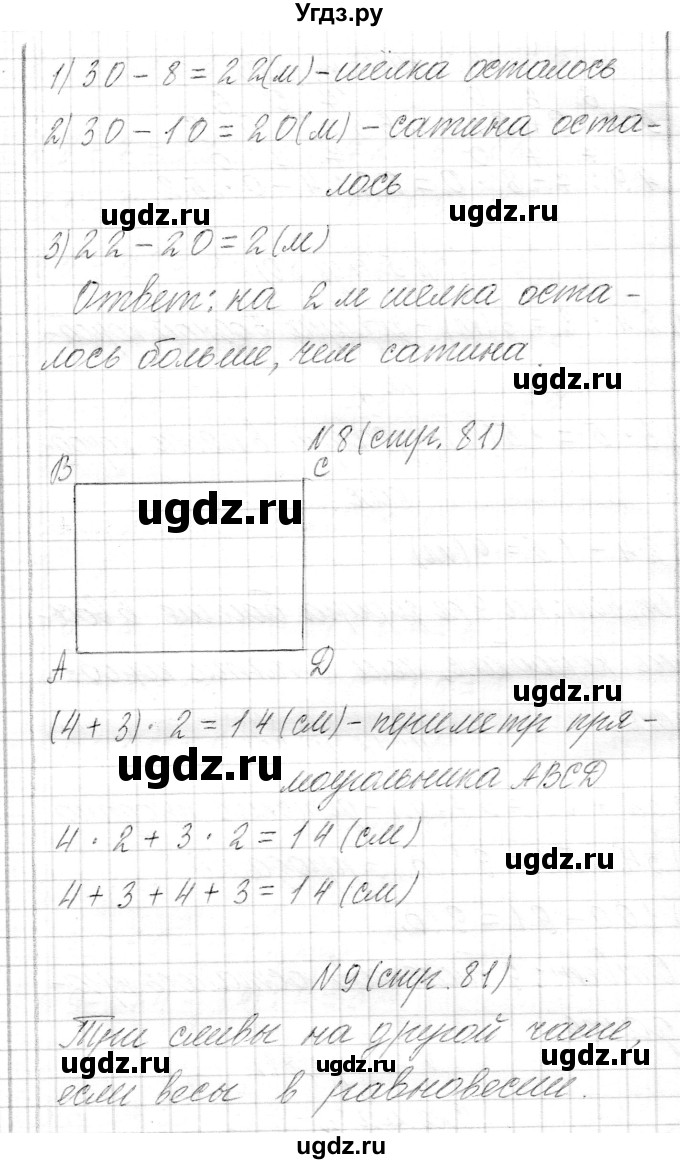 Угдз.ру
1) 30 - 8 = 22(м) - шёлка осталось
2) 30 - 10 = 20(м) - сатина оста-
лось
ugdz.ru
ugdz.ru
3) 22 - 20 = 2(м)
Ответ: на 2 м шёлка оста-
лось больше, чем сатина.
ugdz.ru
N8 (стр. 81)
B
C
ugdz.ru
A
D
ugdz.ru
(4 + 3) · 2 = 14 (см) - периметр пря-
ugdz.ru
моугольника ABCD
4 · 2 + 3 · 2 = 14 (см)
ugdz.ru
4 + 3 + 4 + 3 = 14 (см)
N9 (стр. 81)
Три сливы на другой чаше,
ugdz.ru
ugdz.ru
ugdz.ru
если весы в равновесии.
ugdz.ru